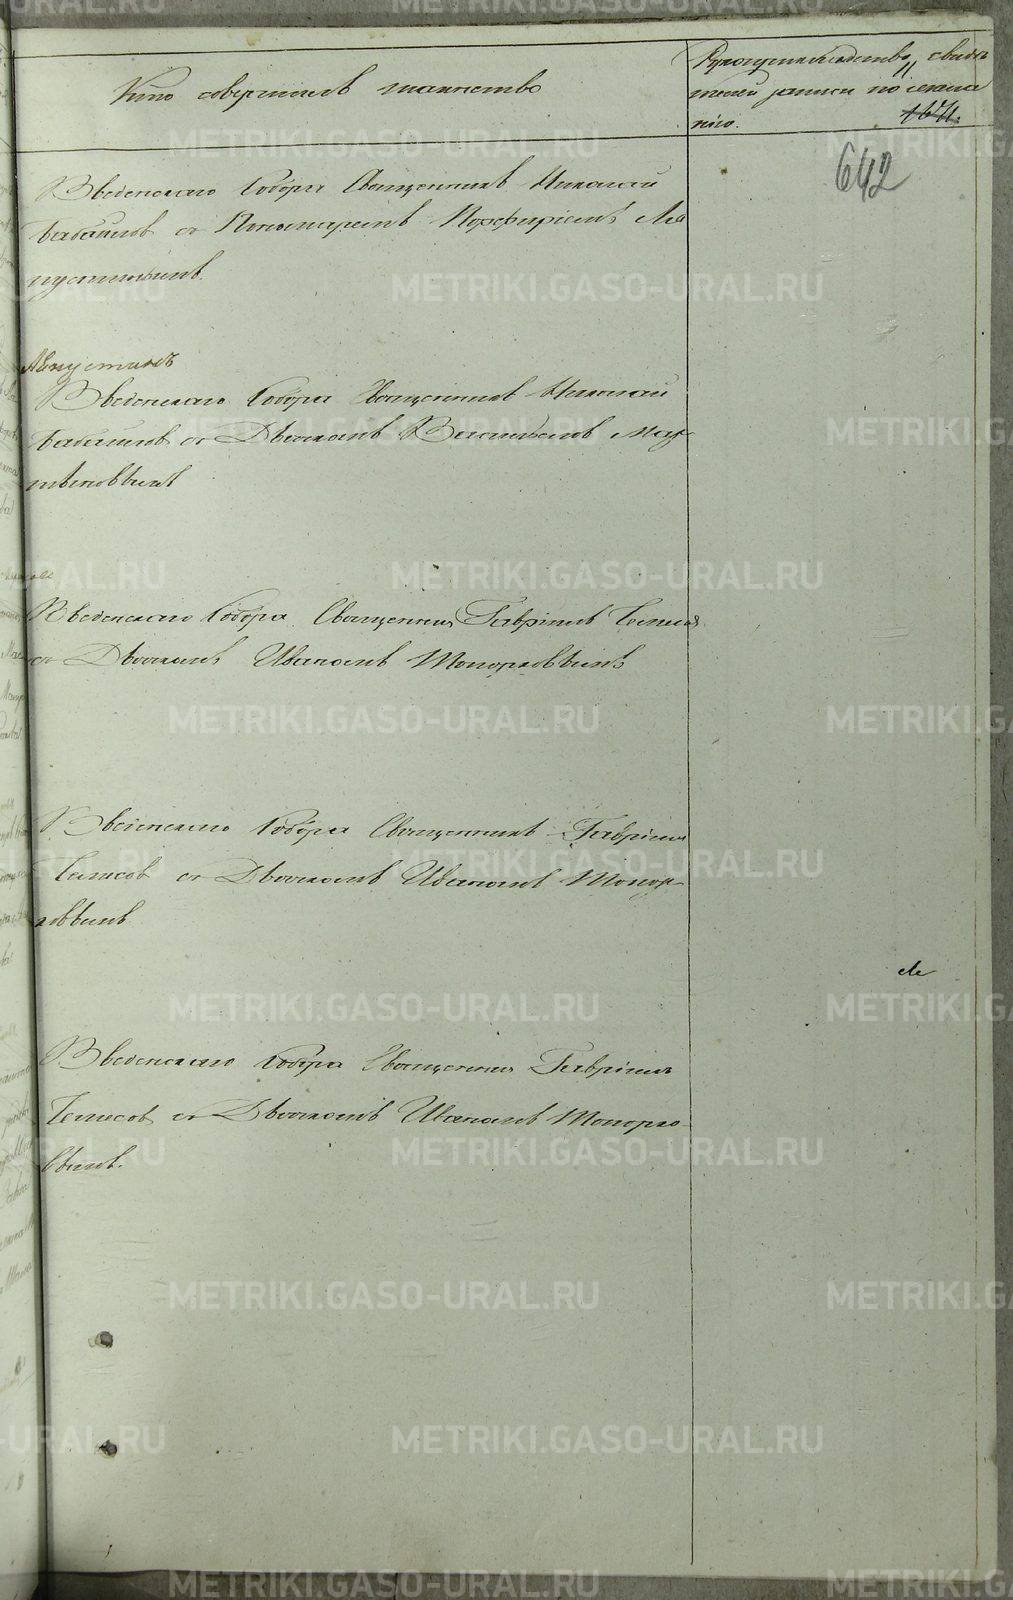 Кто совершалъ таинство
Рукоприкладство свидѣ
телей записи по жела
нію.
1671.
642
Введенскаго Собора Священникъ Николай
Бабаиловъ съ Пономаремъ Порфиріемъ Ле
пустинымъ.
Августинъ
Введенскаго Собора Священникъ Николай
Бабаиловъ съ Діакономъ Василіемъ Мар
тѣновымъ
Введенскаго Собора Священникъ Гавріилъ
съ Діакономъ Иваномъ Топорковымъ
Введенскаго Собора Священникъ Гавріилъ
съ Діакономъ Иваномъ Топор
ковымъ
Введенскаго Собора Священникъ Гавріилъ
съ Діакономъ Иваномъ Топорко
вымъ.
METRIKI.GASO-URAL.RU